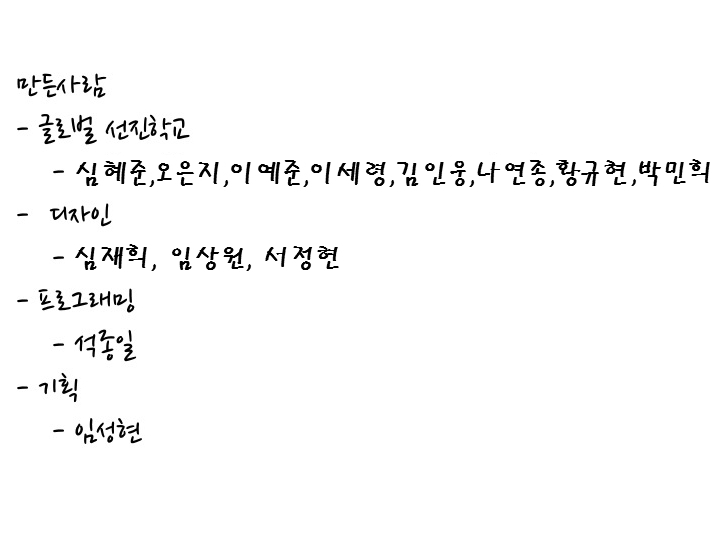 만든사람
- 글로벌 선진학교
- 심혜준,오은지,이예준,이세령,김인웅,나연종,황규현,박민희
- 디자인
- 심재희, 임상원, 서정현
- 프로그래밍
- 석종일
- 기획
- 임성현